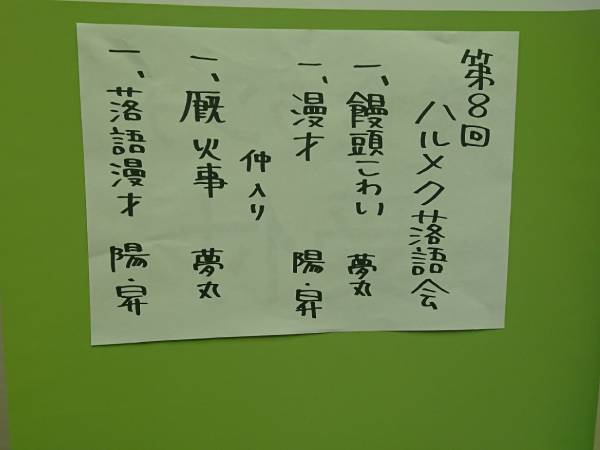 第8回
ハルメク落語会
一、饅頭こわい 夢丸
一、漫才 陽・昇
仲入り
一、厩火事 夢丸
一、落語漫才 陽・昇